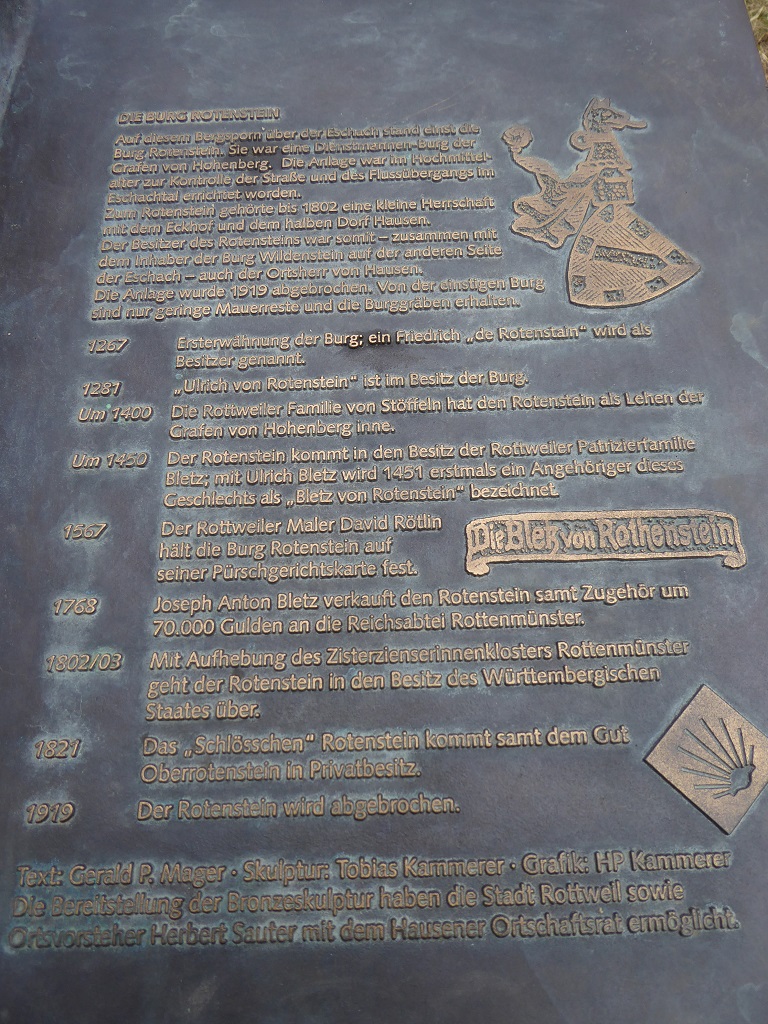 DIE BURG ROTENSTEIN
Auf diesem Bergsporn über der Eschach stand einst die
Burg Rotenstein. Sie war eine Dienstmannen-Burg der
Grafen von Hohenberg. Die Anlage war im Hochmittel-
alter zur Kontrolle der Straße und des Flussübergangs im
Eschachtal errichtet worden.
Zum Rotenstein gehörte bis 1802 eine kleine Herrschaft
mit dem Eckhof und dem halben Dorf Hausen.
Der Besitzer des Rotensteins war somit – zusammen mit
dem Inhaber der Burg Wildenstein auf der anderen Seite
der Eschach – auch der Ortsherr von Hausen.
Die Anlage wurde 1919 abgebrochen. Von der einstigen Burg
sind nur geringe Mauerreste und die Burggräben erhalten.
1267 Ersterwähnung der Burg; ein Friedrich „de Rotenstain“ wird als
Besitzer genannt.
1281 „Ulrich von Rotenstein“ ist im Besitz der Burg.
Um 1400 Die Rottweiler Familie von Stöffeln hat den Rotenstein als Lehen der
Grafen von Hohenberg inne.
Um 1450 Der Rotenstein kommt in den Besitz der Rottweiler Patrizierfamilie
Bletz; mit Ulrich Bletz wird 1451 erstmals ein Angehöriger dieses
Geschlechts als „Bletz von Rotenstein“ bezeichnet.
1567 Der Rottweiler Maler David Rötlin
hält die Burg Rotenstein auf
seiner Pürschgerichtskarte fest.
Die Bletz von Rothenstein
1768 Joseph Anton Bletz verkauft den Rotenstein samt Zugehör um
70.000 Gulden an die Reichsabtei Rottenmünster.
1802/03 Mit Aufhebung des Zisterzienserinnenklosters Rottenmünster
geht der Rotenstein in den Besitz des Württembergischen
Staates über.
1821 Das „Schlösschen“ Rotenstein kommt samt dem Gut
Oberrotenstein in Privatbesitz.
1919 Der Rotenstein wird abgebrochen.
Text: Gerald P. Mager · Skulptur: Tobias Kammerer · Grafik: HP Kammerer
Die Bereitstellung der Bronzeskulptur haben die Stadt Rottweil sowie
Ortsvorsteher Herbert Sauter mit dem Hausener Ortschaftsrat ermöglicht.